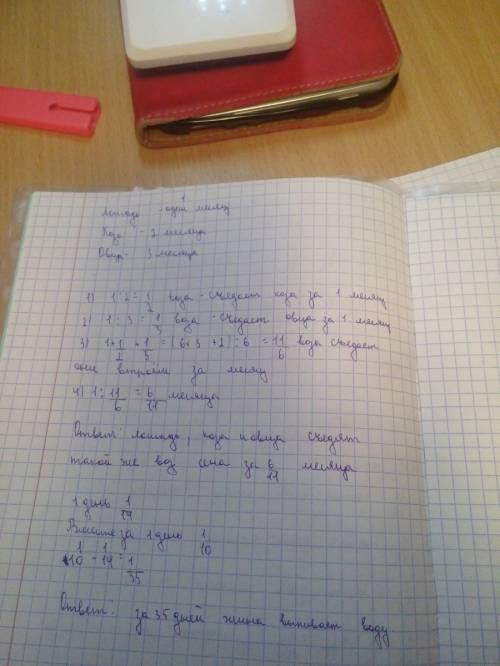 Лошадь - один месяц
Коза - 2 месяца
Овца - 3 месяца
1) 1:2=1/2 воза - съедает коза за 1 месяц
2) 1:3=1/3 воза - съедает овца за 1 месяц
3) 1+1/2+1/3=(6+3+2):6=11/6 воза съедают
они втроём за месяц
4) 1:11/6=6/11 месяца
Ответ: лошадь, коза и овца съедят
такой же воз сена за 6/11 месяца
1 день 1/14
Вместе за 1 день 1/10
1/10-1/14=1/35
Ответ: за 35 дней жена выпивает воду